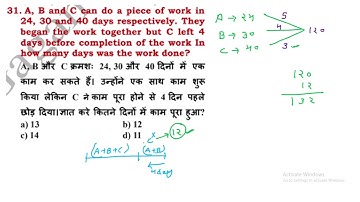 31. A, B and C can do a piece of work in
24, 30 and 40 days respectively. They
began the work together but C left 4
days before completion of the work In
how many days was the work done?
A, B और C क्रमशः 24, 30 और 40 दिनों में एक
काम कर सकते हैं। उन्होंने एक साथ काम शुरू
किया लेकिन C ने काम पूरा होने से 4 दिन पहले
छोड़ दिया।ज्ञात करे कितने दिनों में काम पूरा हुआ?
a) 13 b) 12
c) 14 d) 11
A → 24 5
B → 30 4 120
C → 40 3
120
12
132
12
(A+B+C) (A+B)
4 days
Activate Windows